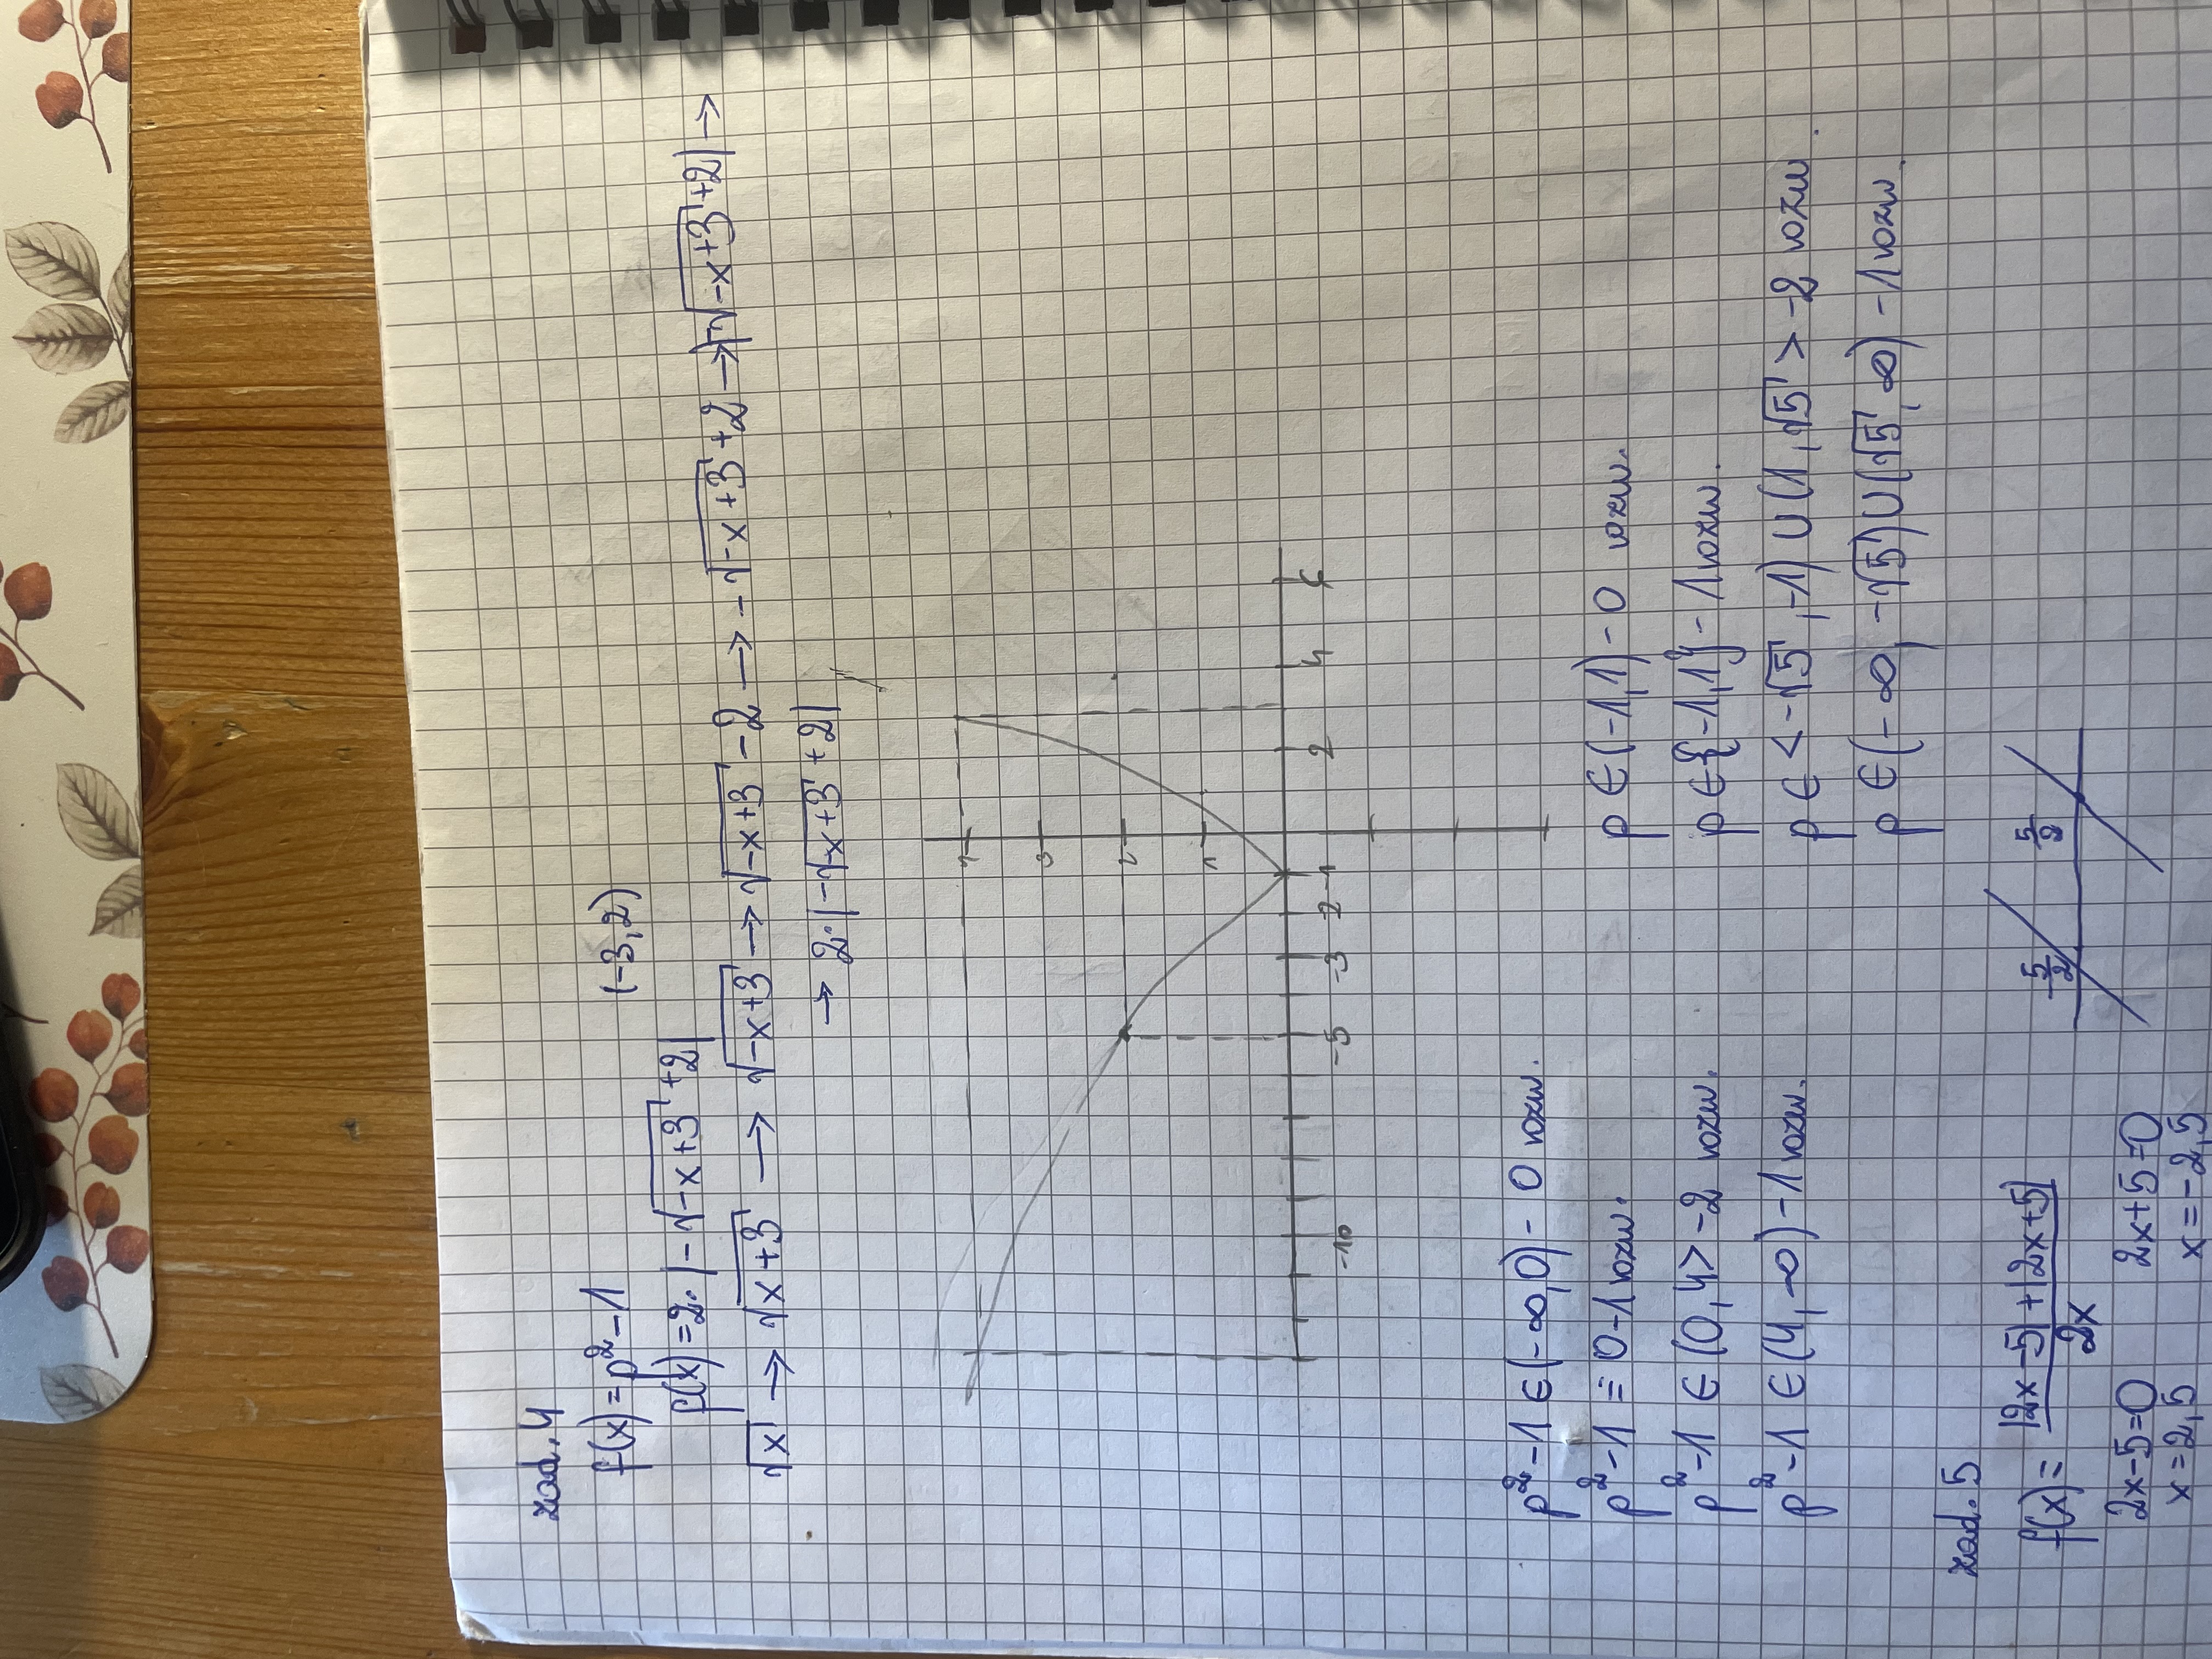 zad. 4
f(x) = p² - 1 (-3,2)
f(x) = 2·|-√(-x+3) +2|
√x → √(x+3) → √(-x+3) → √(-x+3) -2 → -√(-x+3) +2 → |-√(-x+3) +2| →
→ 2·|-√(-x+3) +2|
4
3
2
1
-10 -5 -3 -2 -1 2 4 6
p² - 1 ∈ (-∞,0) - 0 rozw.
p² - 1 = 0 - 1 rozw.
p² - 1 ∈ (0,4> - 2 rozw.
p² - 1 ∈ (4, ∞) - 1 rozw.
p ∈ (-1,1) - 0 rozw.
p ∈ {-1,1} - 1 rozw.
p ∈ <-√5, -1) ∪ (1, √5> - 2 rozw.
p ∈ (-∞, -√5) ∪ (√5, ∞) - 1 rozw.
zad. 5
f(x) = (|2x-5| + |2x+5|)/2x
-5/2 5/2
2x-5=0 2x+5=0
x = 2,5 x = -2,5